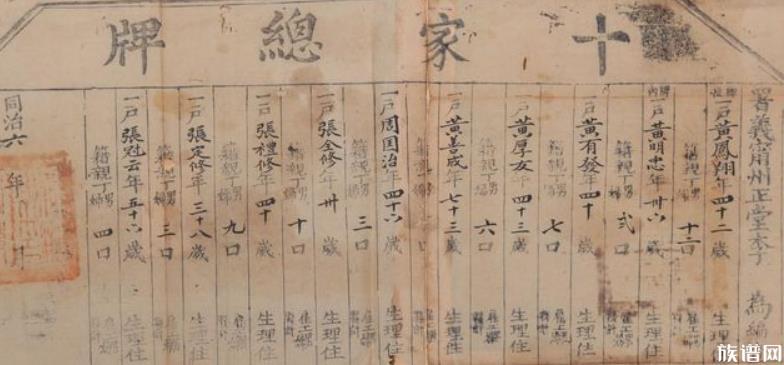 十家總牌
署義甯州正堂李 為編
一戶黃鳳翔年四十二歲 生理住
籍親丁男婦 十二口 雇工
牌內一戶黃明忠年卅六歲 生理住
籍親丁男婦 弍口 雇工
一戶黃有發年四十歲 生理住
籍親丁男婦 七口 雇工
一戶黃厚友年四十三歲 生理住
籍親丁男婦 六口 雇工
一戶黃善成年七十三歲 生理住
籍親丁男婦 口 雇工
一戶周國治年四十六歲 生理住
籍親丁男婦 三口 雇工
一戶張全修年卅歲 生理住
籍親丁男婦 十口 雇工
一戶張禮修年四十歲 生理住
籍親丁男婦 九口 雇工
一戶張定修年三十八歲 生理住
籍親丁男婦 三口 雇工
一戶張冠云年五十六歲 生理住
籍親丁男婦 四口
同治六年 月
族谱网